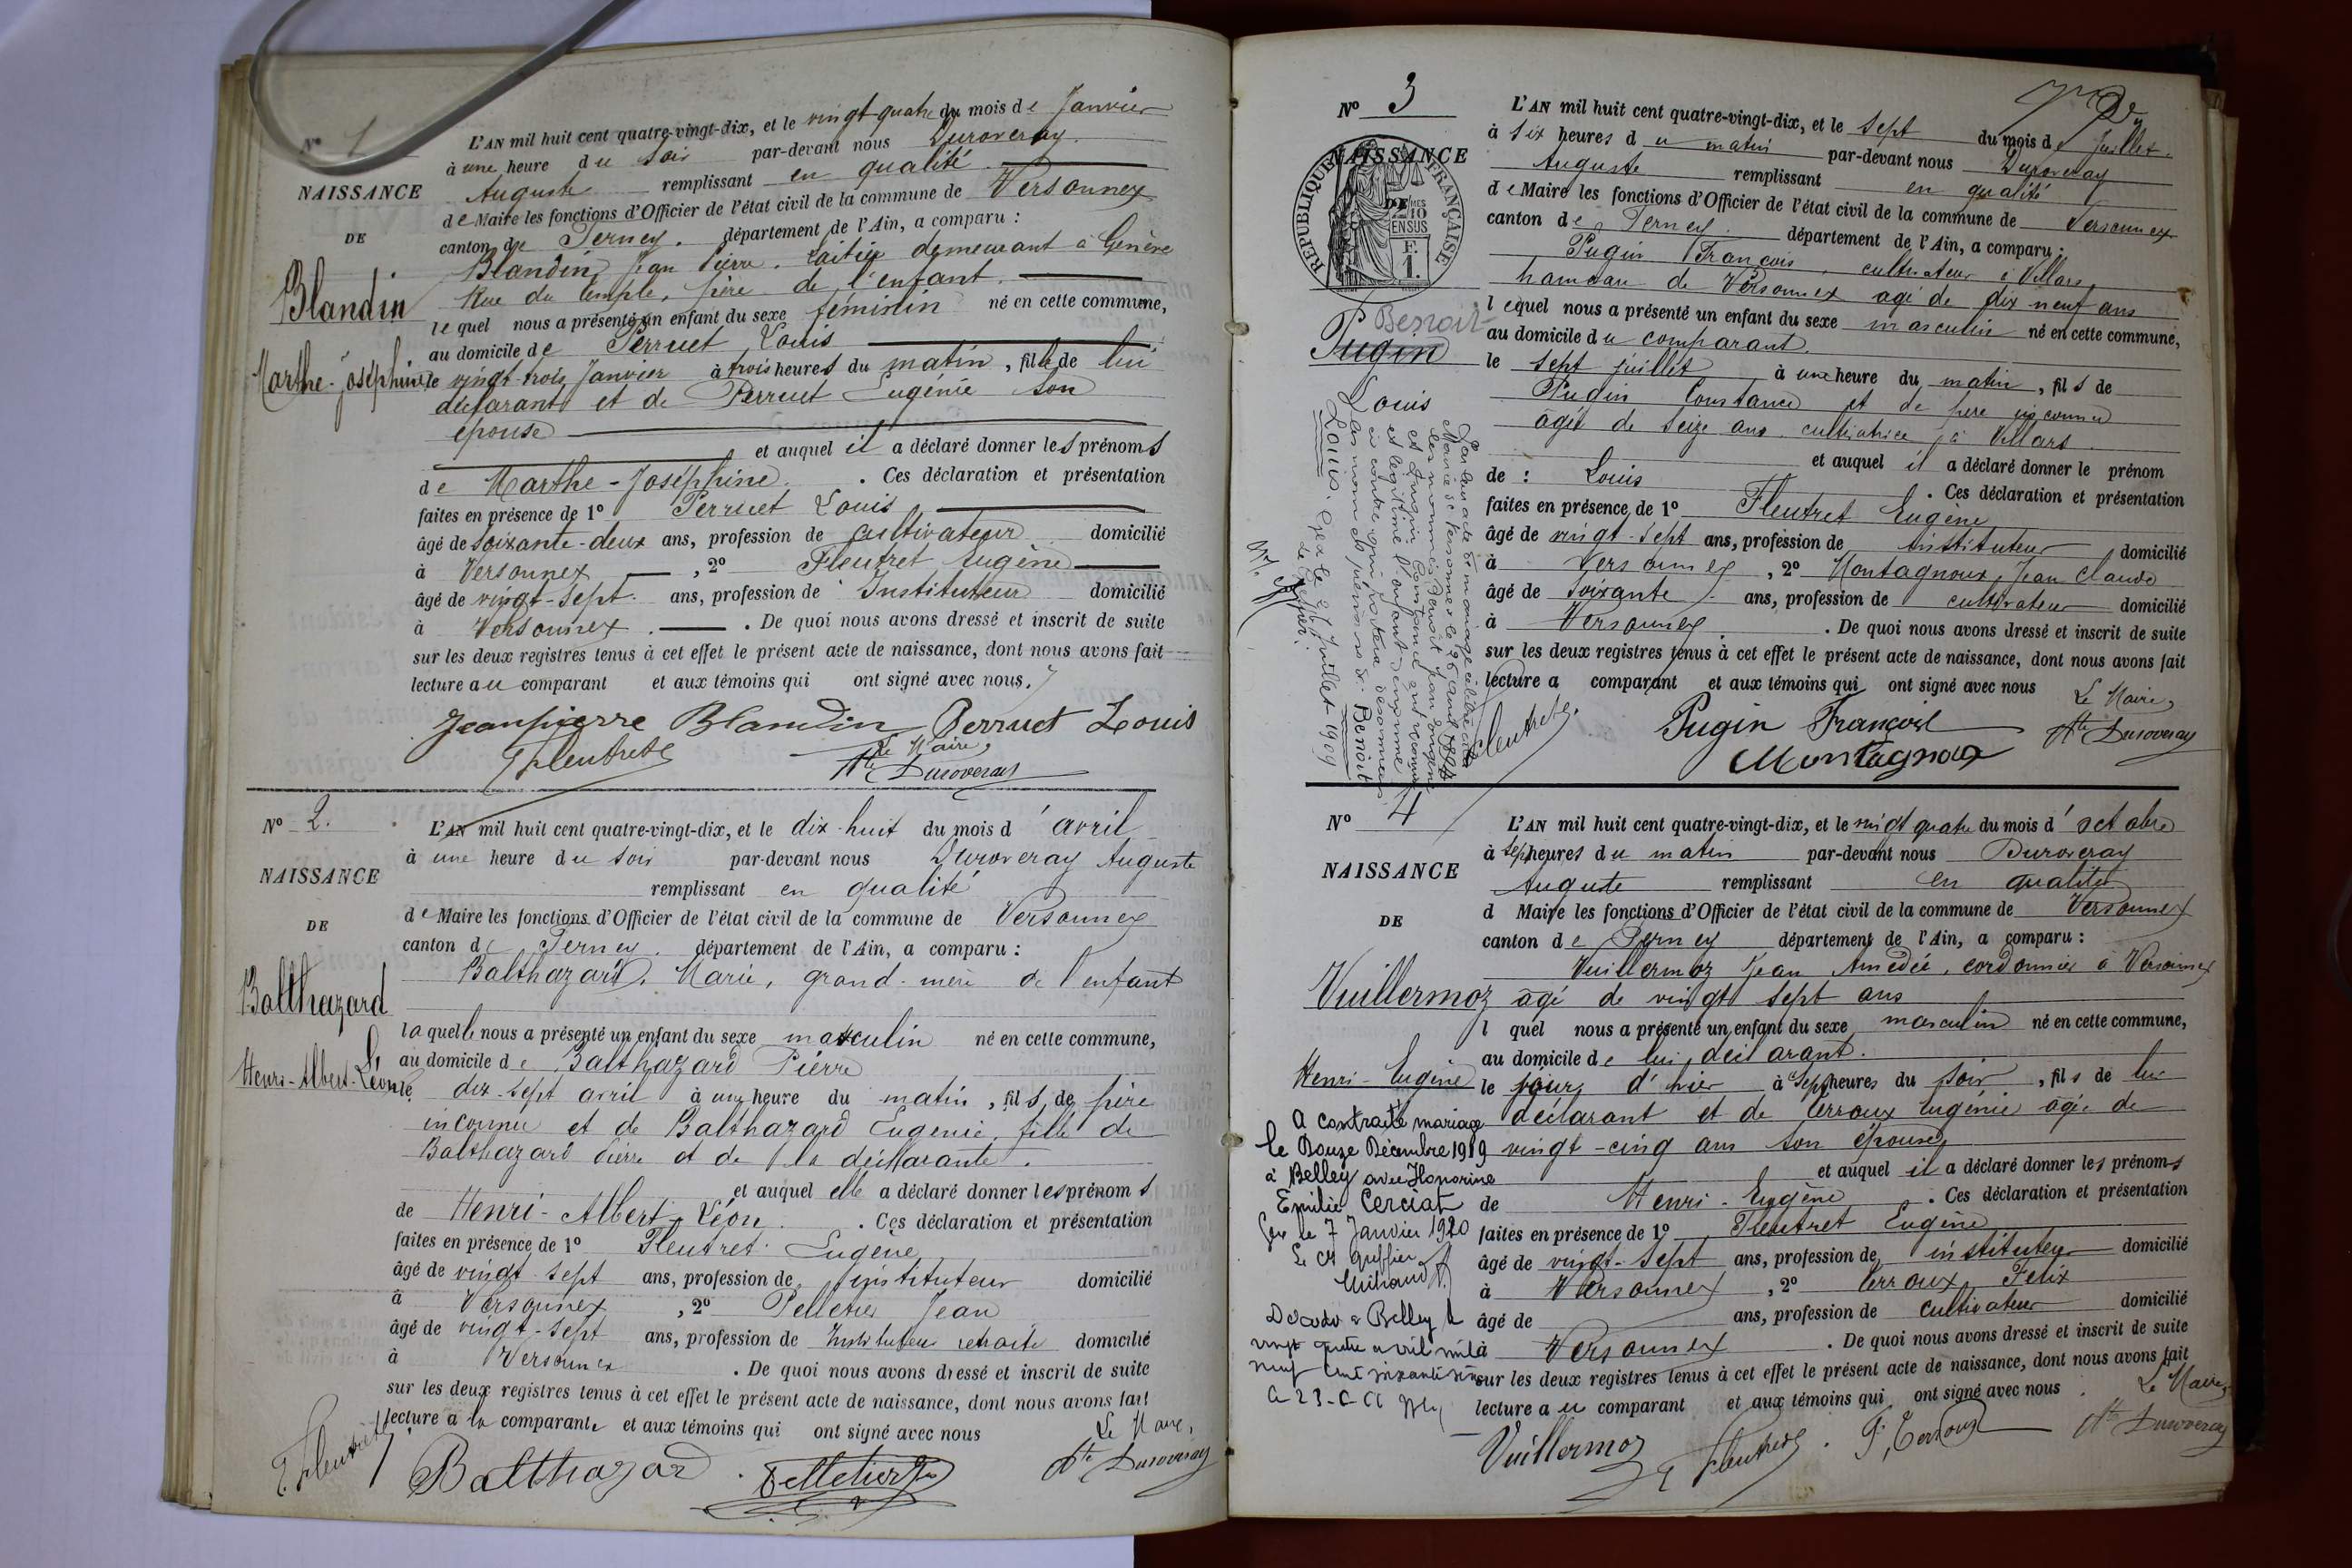 N° 1
NAISSANCE
DE
Blandin
Marthe-Joséphine
L'AN mil huit cent quatre-vingt-dix, et le vingt-quatre du mois de Janvier
à une heure du soir par-devant nous Duroveray
Auguste remplissant en qualité
de Maire les fonctions d'Officier de l'état civil de la commune de Versonnex
canton de Ferney. département de l'Ain, a comparu :
Blandin, Jean Pierre. laitier demeurant à Genève
Rue du Temple, père de l'enfant.
lequel nous a présenté un enfant du sexe féminin né en cette commune,
au domicile de Perruet Louis
le vingt-trois Janvier à trois heures du matin, fille de lui
déclarant et de Perruet Eugénie son
épouse
et auquel il a déclaré donner les prénoms
de Marthe-Joséphine. . Ces déclaration et présentation
faites en présence de 1° Perruet Louis
âgé de soixante-deux ans, profession de cultivateur domicilié
à Versonnex , 2° Fleutret Eugène
âgé de vingt-sept ans, profession de Instituteur domicilié
à Versonnex . De quoi nous avons dressé et inscrit de suite
sur les deux registres tenus à cet effet le présent acte de naissance, dont nous avons fait
lecture au comparant et aux témoins qui ont signé avec nous.
Jeanpierre Blandin Perruet Louis
E Fleutret Le Maire,
Ate Duroveray
N° 2.
NAISSANCE
DE
Balthazard
Henri-Albert-Léon
L'AN mil huit cent quatre-vingt-dix, et le dix-huit du mois d'avril
à une heure du soir par-devant nous Duroveray Auguste
remplissant en qualité
de Maire les fonctions d'Officier de l'état civil de la commune de Versonnex
canton de Ferney. département de l'Ain, a comparu :
Balthazard, Marie, grand-mère de l'enfant
laquelle nous a présenté un enfant du sexe masculin né en cette commune,
au domicile de Balthazard Pierre
le dix-sept avril à une heure du matin, fils de père
inconnu et de Balthazard Eugénie, fille de
Balthazard Pierre et de la déclarante.
et auquel elle a déclaré donner les prénoms
de Henri-Albert Léon. . Ces déclaration et présentation
faites en présence de 1° Fleutret Eugène
âgé de vingt-sept ans, profession de instituteur domicilié
à Versonnex , 2° Pelletier Jean
âgé de vingt-sept ans, profession de Instituteur retraité domicilié
à Versonnex . De quoi nous avons dressé et inscrit de suite
sur les deux registres tenus à cet effet le présent acte de naissance, dont nous avons fait
lecture a la comparante et aux témoins qui ont signé avec nous
Le Maire,
E. Fleutret Balthazard Pelletier Ate Duroveray
N° 3
NAISSANCE
DE
RÉPUBLIQUE FRANÇAISE
2/10
EN SUS
F.
1.
Benoit
Pugin
Louis
Par leur acte de mariage célébré à la
Mairie de Versonnex le 26 avril 1894
les nommés Benoit Jean
et Pugin Constance ont reconnu
et légitimé l'enfant dénommé
ci contre qui portera désormais
les nom et prénoms de: Benoit
Louis. Gex le 2 Juillet 1909
L'AN mil huit cent quatre-vingt-dix, et le sept du mois de Juillet
à six heures du matin par-devant nous Duroveray
Auguste remplissant en qualité
de Maire les fonctions d'Officier de l'état civil de la commune de Versonnex
canton de Ferney. département de l'Ain, a comparu :
Pugin François, cultivateur à Villars,
hameau de Versonnex agé de dix neuf ans
lequel nous a présenté un enfant du sexe masculin né en cette commune,
au domicile du comparant.
le sept juillet à une heure du matin, fils de
Pugin Constance et de père inconnu
agée de seize ans, cultivatrice à Villars.
et auquel il a déclaré donner le prénom
de : Louis . Ces déclaration et présentation
faites en présence de 1° Fleutret Eugène
âgé de vingt-sept ans, profession de Instituteur domicilié
à Versonnex , 2° Montagnoux, Jean Claude
âgé de soixante ans, profession de cultivateur domicilié
à Versonnex . De quoi nous avons dressé et inscrit de suite
sur les deux registres tenus à cet effet le présent acte de naissance, dont nous avons fait
lecture a comparant et aux témoins qui ont signé avec nous
Le Maire,
Fleutret. Pugin François Ate Duroveray
Montagnoux
N° 4
NAISSANCE
DE
Vuillermoz
Henri-Eugène
A contracté mariage
le Douze Décembre 1919
à Belley avec Honorine
Emilie Cerciat
Gex le 7 Janvier 1920
Le Cs Greffier
Décédé à Belley le
vingt quatre avril mil
neuf cent soixante
L'AN mil huit cent quatre-vingt-dix, et le vingt quatre du mois d'octobre
à sept heures du matin par-devant nous Duroveray
Auguste remplissant en qualité
d Maire les fonctions d'Officier de l'état civil de la commune de Versonnex
canton de Ferney département de l'Ain, a comparu :
Vuillermoz Jean Amédée, cordonnier à Versonnex
agé de vingt sept ans
l quel nous a présenté un enfant du sexe masculin né en cette commune,
au domicile de lui déclarant.
le jour d'hier à sept heures du soir, fils de lui
déclarant et de Terroux Eugénie agée de
vingt-cinq ans son épouse
et auquel il a déclaré donner les prénoms
de Henri-Eugène . Ces déclaration et présentation
faites en présence de 1° Fleutret Eugène
âgé de vingt-sept ans, profession de instituteur domicilié
à Versonnex , 2° Terroux, Félix
âgé de ans, profession de cultivateur domicilié
à Versonnex . De quoi nous avons dressé et inscrit de suite
sur les deux registres tenus à cet effet le présent acte de naissance, dont nous avons fait
lecture au comparant et aux témoins qui ont signé avec nous. Le Maire,
Vuillermoz E Fleutret. F. Terroux Ate Duroveray